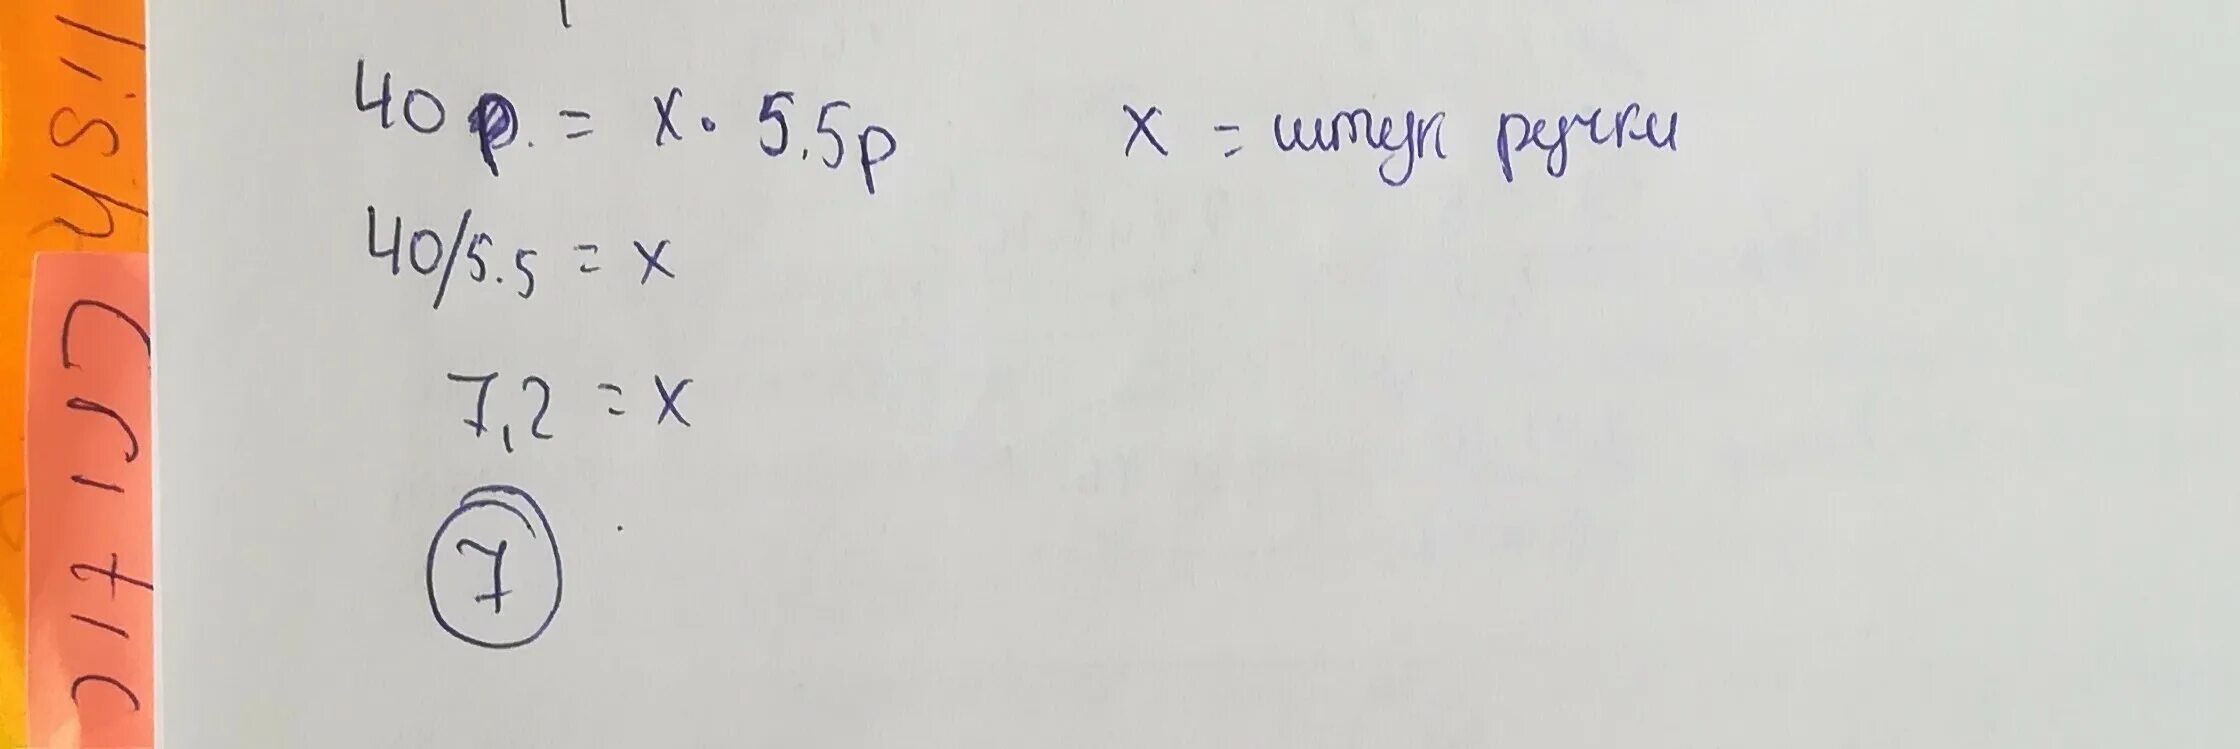 40 р. = x · 5.5р
x = штук ручки
40/5.5 = x
7,2 = x
7
Critic